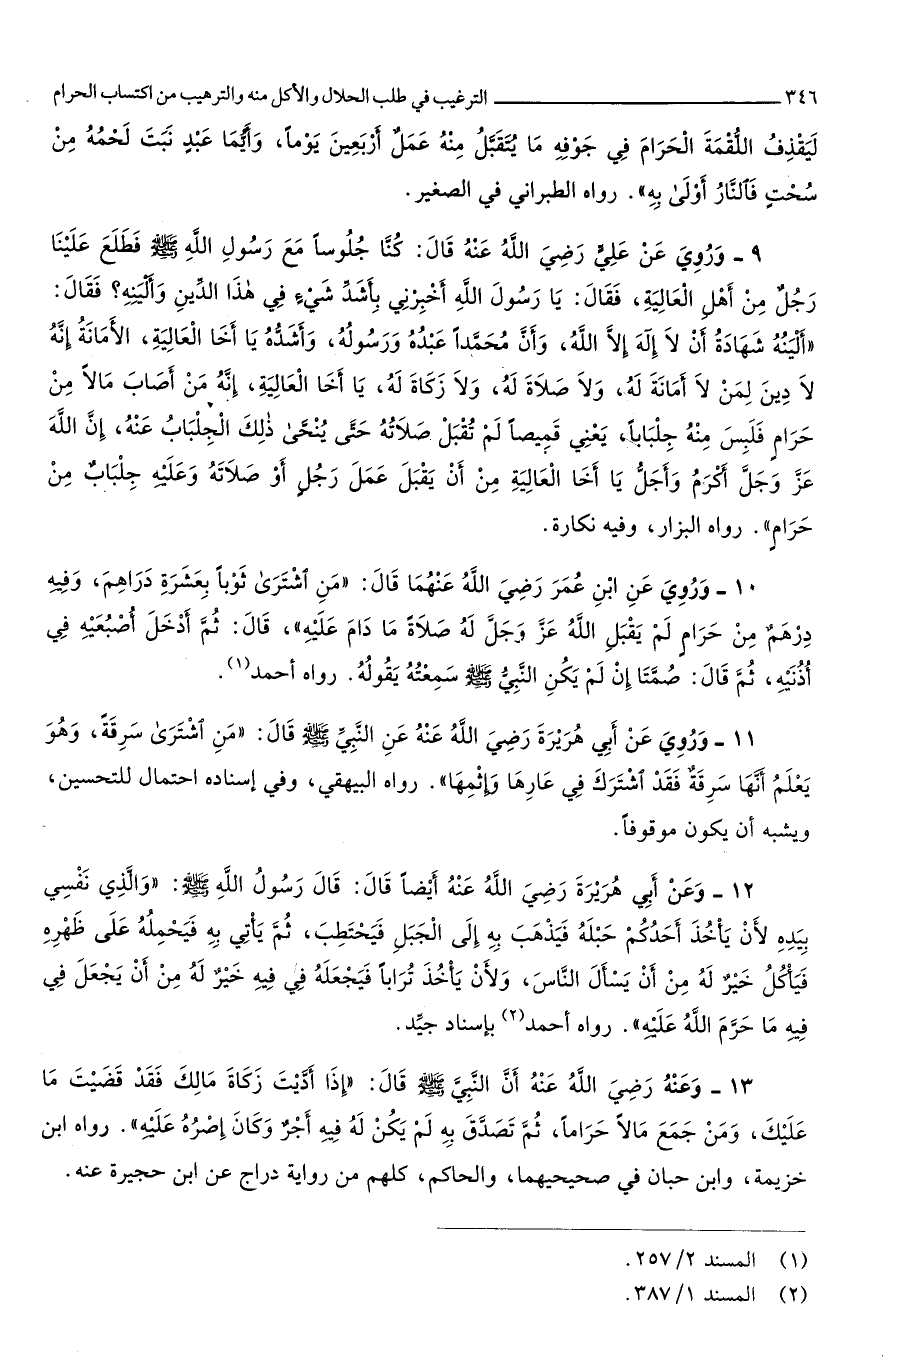 ٣٤٦ ــــــــ الترغيب في طلب الحلال والأكل منه والترهيب من اكتساب الحرام
لَيَقْذِفُ اللُّقْمَةَ الْحَرَامَ فِي جَوْفِهِ مَا يُتَقَبَّلُ مِنْهُ عَمَلٌ أَرْبَعِينَ يَوْماً، وَأَيُّمَا عَبْدٍ نَبَتَ لَحْمُهُ مِنْ
سُحْتٍ فَٱلنَّارُ أَوْلَىٰ بِهِ». رواه الطبراني في الصغير.
٩ ـ وَرُوِيَ عَنْ عَلِيٍّ رَضِيَ اللَّهُ عَنْهُ قَالَ: كُنَّا جُلُوساً مَعَ رَسُولِ اللَّهِ ﷺ فَطَلَعَ عَلَيْنَا
رَجُلٌ مِنْ أَهْلِ الْعَالِيَةِ، فَقَالَ: يَا رَسُولَ اللَّهِ أَخْبِرْنِي بِأَشَدِّ شَيْءٍ فِي هٰذَا الدِّينِ وَأَلْيَنِهِ؟ فَقَالَ:
«أَلْيَنُهُ شَهَادَةُ أَنْ لاَ إِلٓهَ إِلاَّ اللَّهُ، وَأَنَّ مُحَمَّداً عَبْدُهُ وَرَسُولُهُ، وَأَشَدُّهُ يَا أَخَا الْعَالِيَةِ، الأَمَانَةُ إِنَّهُ
لاَ دِينَ لِمَنْ لاَ أَمَانَةَ لَهُ، وَلاَ صَلاَةَ لَهُ، وَلاَ زَكَاةَ لَهُ، يَا أَخَا الْعَالِيَةِ، إِنَّهُ مَنْ أَصَابَ مَالاً مِنْ
حَرَامٍ فَلَبِسَ مِنْهُ جِلْبَاباً، يَعْنِي قَمِيصاً لَمْ تُقْبَلْ صَلاَتُهُ حَتَّى يُنْحَّىٰ ذٰلِكَ الْجِلْبَابُ عَنْهُ، إِنَّ اللَّهَ
عَزَّ وَجَلَّ أَكْرَمُ وَأَجَلُّ يَا أَخَا الْعَالِيَةِ مِنْ أَنْ يَقْبَلَ عَمَلَ رَجُلٍ أَوْ صَلاَتَهُ وَعَلَيْهِ جِلْبَابٌ مِنْ
حَرَامٍ». رواه البزار، وفيه نكارة.
١٠ ـ وَرُوِيَ عَنِ ابْنِ عُمَرَ رَضِيَ اللَّهُ عَنْهُمَا قَالَ: «مَنِ ٱشْتَرَىٰ ثَوْباً بِعَشَرَةِ دَرَاهِمَ، وَفِيهِ
دِرْهَمٌ مِنْ حَرَامٍ لَمْ يَقْبَلِ اللَّهُ عَزَّ وَجَلَّ لَهُ صَلاَةً مَا دَامَ عَلَيْهِ»، قَالَ: ثُمَّ أَدْخَلَ أُصْبُعَيْهِ فِي
أُذُنَيْهِ، ثُمَّ قَالَ: صُمَّتَا إِنْ لَمْ يَكُنِ النَّبِيُّ ﷺ سَمِعْتُهُ يَقُولُهُ. رواه أحمد(١).
١١ ـ وَرُوِيَ عَنْ أَبِي هُرَيْرَةَ رَضِيَ اللَّهُ عَنْهُ عَنِ النَّبِيِّ ﷺ قَالَ: «مَنِ ٱشْتَرَىٰ سَرِقَةً، وَهُوَ
يَعْلَمُ أَنَّهَا سَرِقَةٌ فَقَدْ ٱشْتَرَكَ فِي عَارِهَا وَإِثْمِهَا». رواه البيهقي، وفي إسناده احتمال للتحسين،
ويشبه أن يكون موقوفاً.
١٢ ـ وَعَنْ أَبِي هُرَيْرَةَ رَضِيَ اللَّهُ عَنْهُ أَيْضاً قَالَ: قَالَ رَسُولُ اللَّهِ ﷺ: «وَالَّذِي نَفْسِي
بِيَدِهِ لأَنْ يَأْخُذَ أَحَدُكُمْ حَبْلَهُ فَيَذْهَبَ بِهِ إِلَى الْجَبَلِ فَيَحْتَطِبَ، ثُمَّ يَأْتِي بِهِ فَيَحْمِلُهُ عَلَى ظَهْرِهِ
فَيَأْكُلُ خَيْرٌ لَهُ مِنْ أَنْ يَسْأَلَ النَّاسَ، وَلأَنْ يَأْخُذَ تُرَاباً فَيَجْعَلَهُ فِي فِيهِ خَيْرٌ لَهُ مِنْ أَنْ يَجْعَلَ فِي
فِيهِ مَا حَرَّمَ اللَّهُ عَلَيْهِ». رواه أحمد(٢) بإسناد جيِّد.
١٣ ـ وَعَنْهُ رَضِيَ اللَّهُ عَنْهُ أَنَّ النَّبِيَّ ﷺ قَالَ: «إِذَا أَدَّيْتَ زَكَاةَ مَالِكَ فَقَدْ قَضَيْتَ مَا
عَلَيْكَ، وَمَنْ جَمَعَ مَالاً حَرَاماً، ثُمَّ تَصَدَّقَ بِهِ لَمْ يَكُنْ لَهُ فِيهِ أَجْرٌ وَكَانَ إِصْرُهُ عَلَيْهِ». رواه ابن
خزيمة، وابن حبان في صحيحيهما، والحاكم، كلهم من رواية دراج عن ابن حجيرة عنه.
(١) المسند ٢/ ٢٥٧.
(٢) المسند ١/ ٣٨٧.